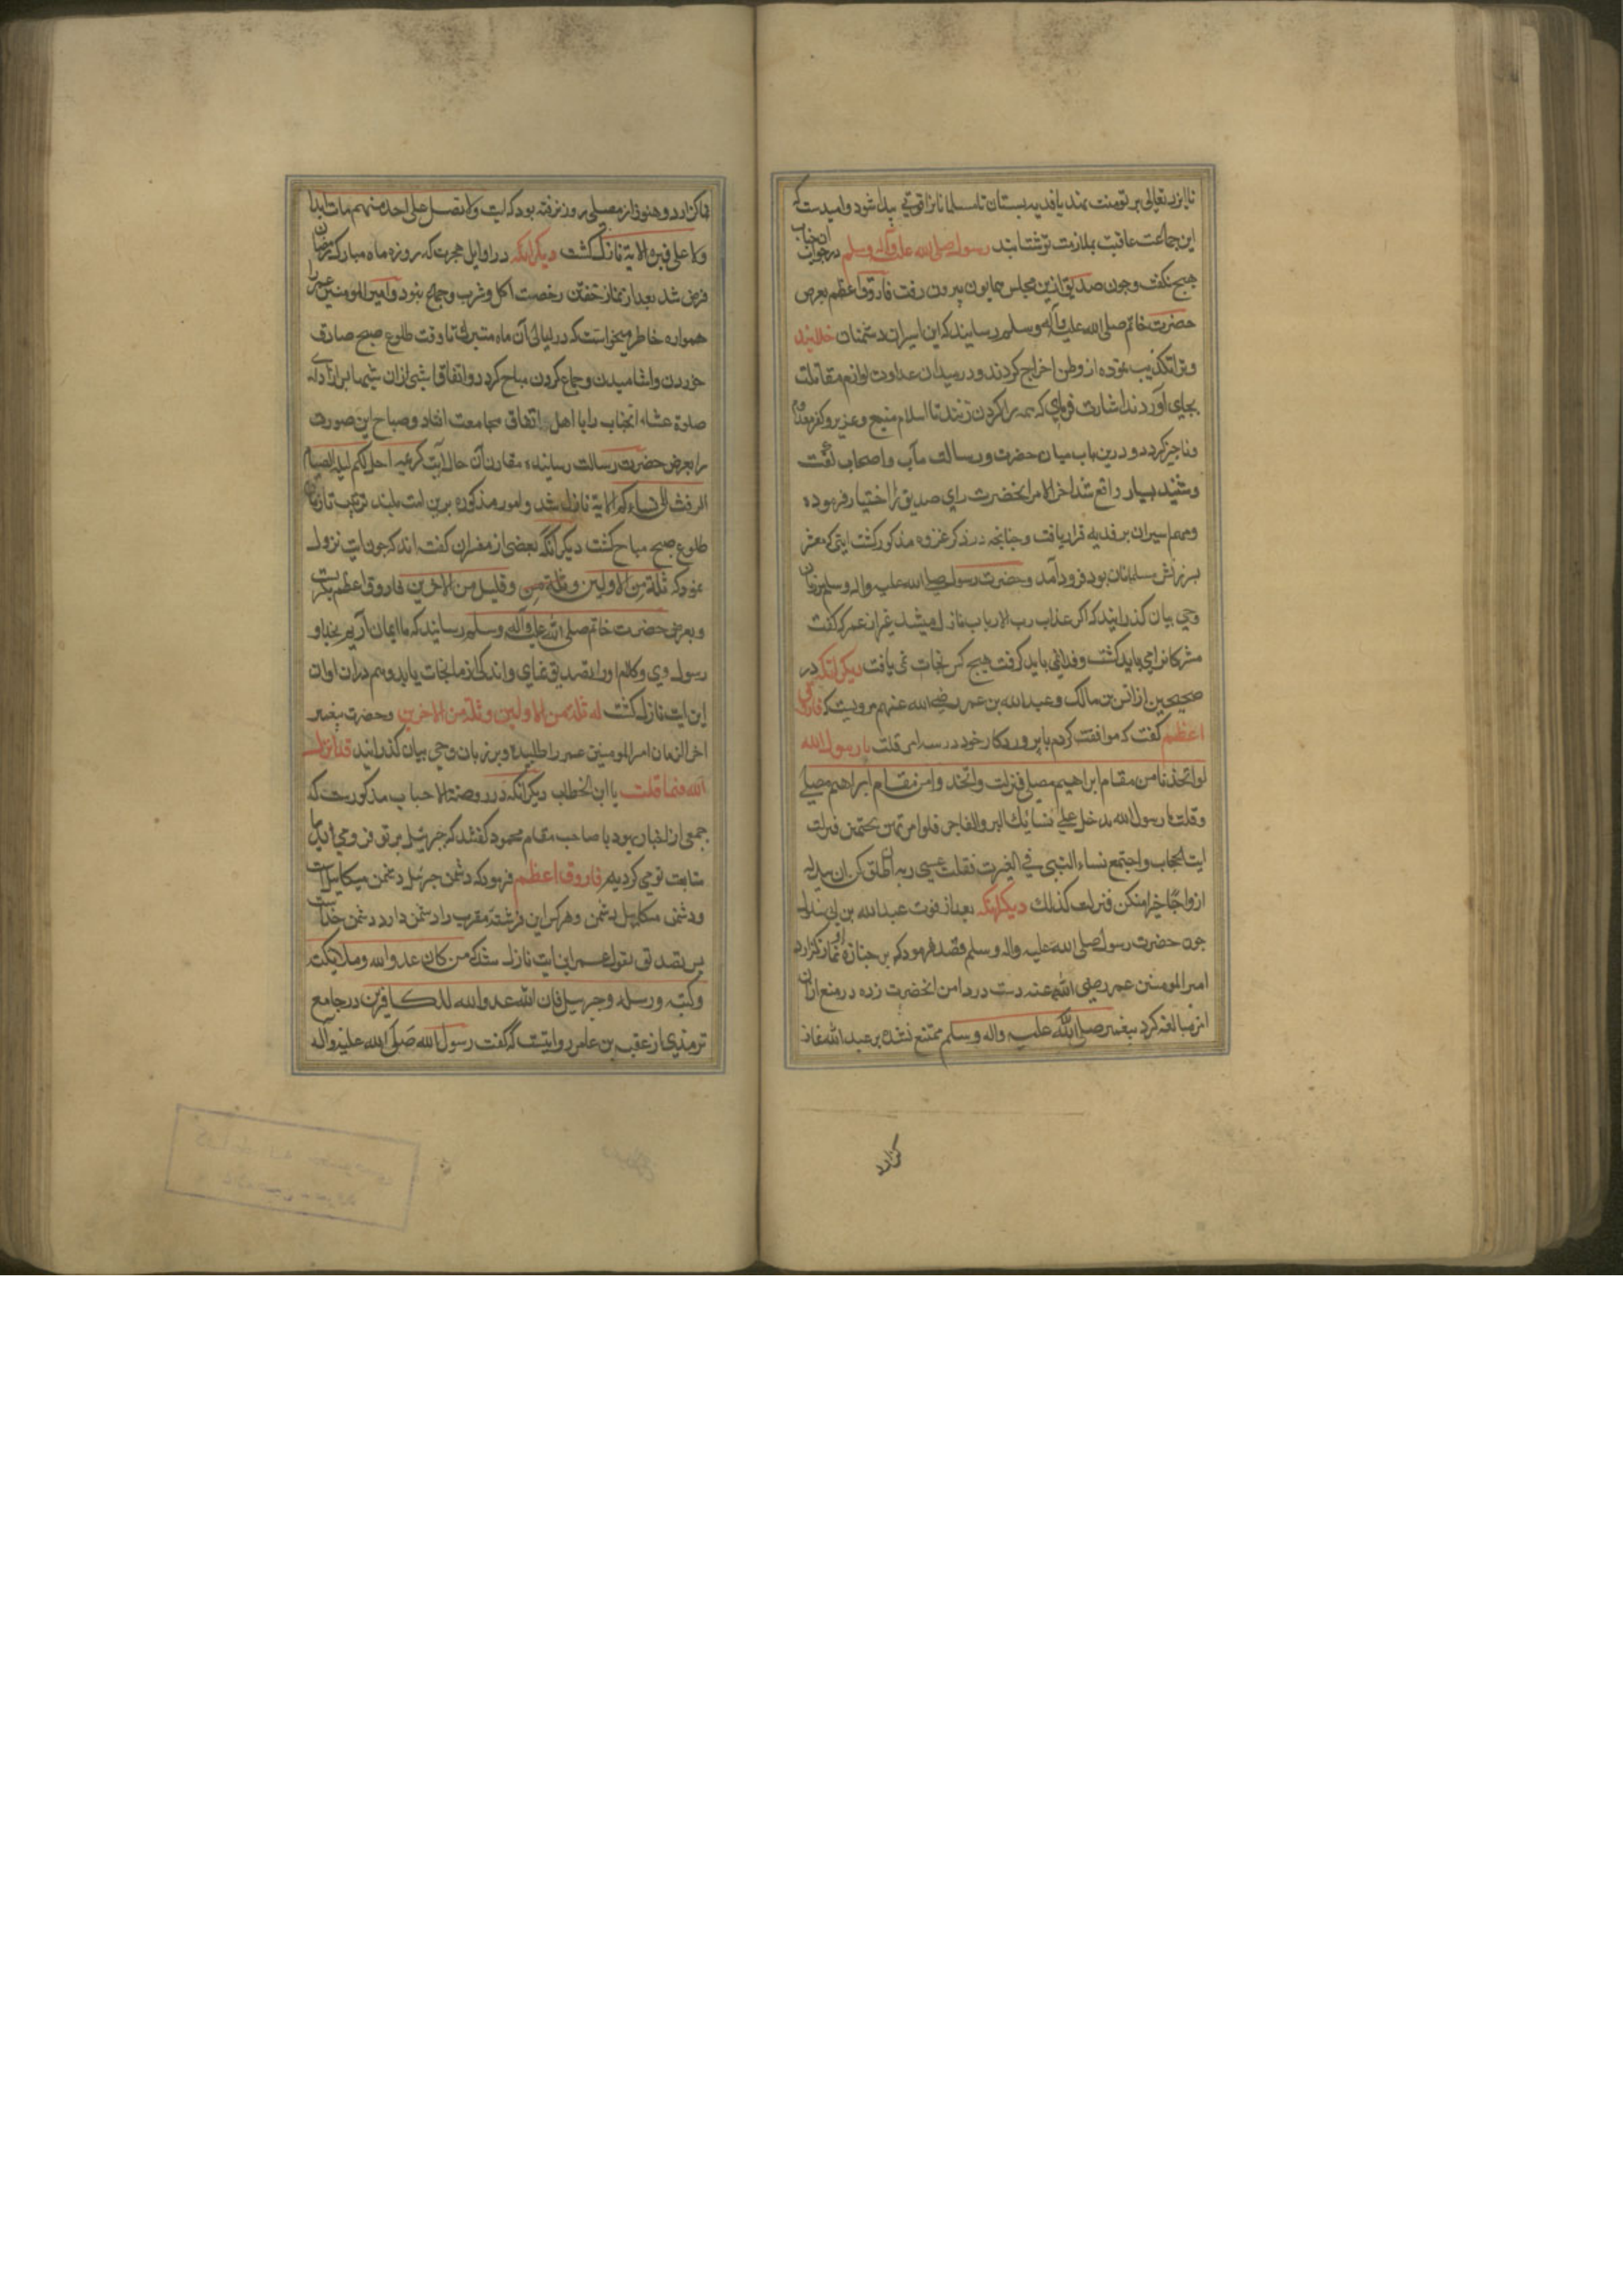 تا ایزد تعالی بر تو منت نهد یا فدیه بستان تا مسلمانانرا قوتی پیدا شود و امیدست که
این جماعت عاقبت بملازمت تو شتابند رسول صلی الله علیه وآله وسلم در جواب آن جناب
هیچ نکفت و چون صدیق ازین مجلس همایون بیرون رفت فاروق اعظم بعرض
حضرت خاتم صلی الله علیه وآله وسلم رسانید که این اسیران دشمنان
وترا تکذیب نموده از وطن اخراج کردند و در میدان عداوت لوازم مقاتلت
بجای آوردند اشارت فرمای که همه را کردن زنند تا اسلام منیع و عزیز و کفر
وناچیز کردد و درین باب میان حضرت رسالت مآب و اصحاب کفت
وشنید بسیار واقع شد اخر الامر انحضرت رای صدیق را اختیار فرموده
ومهم اسیران بر فدیه قرار یافت و چنانچه در ذکر غزوه مذکور کشت ایتی که مشعر
بسرزنش مسلمانان بود فرود آمد و حضرت رسول صلی الله علیه واله وسلم بر زبان
وحی بیان کذرانید که اکر عذاب رب الارباب نازل میشد غیر از عمر که کفت
مشرکانرا می باید کشت و فدا نمی باید کرفت هیچ کس نجات نمی یافت دیکر انکه در
صحیحین از انس بن مالک و عبدالله بن عمر رضی الله عنهم مرویست که فاروق
اعظم کفت که موافقت کردم با پروردکار خود در سه امر قلت یا رسول الله
لو اتخذنا من مقام ابراهیم مصلی فنزلت واتخذوا من مقام ابراهیم مصلی
وقلت یا رسول الله یدخل علی نسائک البر والفاجر فلو امرتهن یحتجبن فنزلت
ایت الحجاب واجتمع نساء النبی فی الغیرت فقلت عسی ربه ان طلقکن ان یبدله
ازواجا خیرا منکن فنزلت کذلک دیکر انکه بعد از فوت عبدالله بن ابی سلول
چون حضرت رسول صلی الله علیه واله وسلم قصد فرمود که بر جنازه او نماز کزارد
امیر المومنین عمر رضی الله عنه دست در دامن انحضرت زده در منع ازان
امر مبالغه کرد پیغمبر صلی الله علیه واله وسلم ممتنع نشده بر عبدالله نماز
کزارد
کزارد و هنوز از مصلی بیرون نرفته بود که ایت ولا تصل علی احد منهم مات ابدا
ولا علی قبره الایة نازل کشت دیکر انکه در اوایل هجرت که روزه ماه مبارک رمضان
فرض شد بعد از نماز خفتن رخصت اکل و شرب و جماع نبود و امیر المومنین عمر را
همواره خاطر میخواست که در لیالی آن ماه متبرک تا وقت طلوع صبح صادق
خوردن واشامیدن و جماع کردن مباح کردد و اتفاقا شبی ازان شبها بعد از ادای
صلوة عشاء انجناب را با اهل اتفاق مجامعت افتاد و صباح این صورت
را بعرض حضرت رسالت رسانیده مقارن آن حال آیت کریمه احل لکم لیلة الصیام
الرفث الی نساءکم الایة نازل شد و امور مذکوره برین امت بلند مرتبت تا زمان
طلوع صبح مباح کشت دیکر آنکه بعضی از مفسران کفته اند که چون ایت نزول
نمود که ثلة من الاولین وقلیل من الاخرین فاروق اعظم بکریست
وبعرض حضرت خاتم صلی الله علیه وآله وسلم رسانید که ما ایمان آریم بخدا و
رسول وی و کلام او را تصدیق نمای و اندکی از ما نجات یابد و هم دران اوان
این ایت نازل کشت که ثلة من الاولین وثلة من الاخرین وحضرت پیغمبر
اخر الزمان امیر المومنین عمر را طلبیده و بر زبان وحی بیان کذرانید قد انزل
الله فیما قلت یا ابن الخطاب دیکر آنکه در روضة الاحباب مذکورست که
جمعی از احبار یهود با صاحب مقام محمود کفتند که جبرئیل بر تو فرو می آید
متابعت تو می کردیم فاروق اعظم فرمود که دشمن جبرئیل دشمن میکائیل است
ودشمن میکائیل دشمن و هر کس این فرشته مقرب را دشمن دارد دشمن خداست
پس بتصدیق قول عمر این ایت نازل شد که من کان عدوا لله وملایکته
وکتبه ورسله وجبریل فان الله عدو الله للکافرین در جامع
ترمذی از عقبه بن عامر روایتست که کفت رسول الله صلی الله علیه وآله